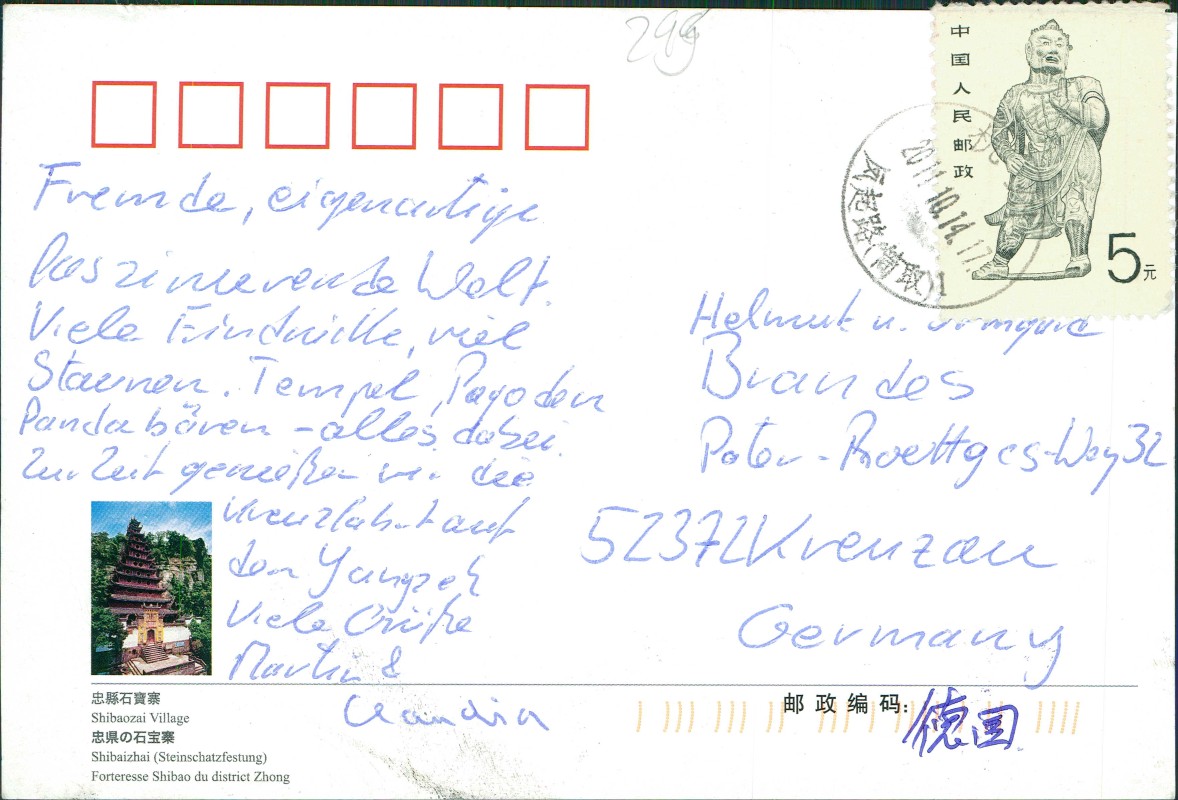 299
中国人民邮政
5元
2011.10.14.17
风起路
Fremde, eigenartige
faszinierende Welt.
Viele Eindrücke, viel
Staunen. Tempel, Pagoden
Pandabären - alles dabei.
Zur Zeit genießen wir die
Kreuzfahrt auf
dem Yangzeh
Viele Grüße
Martin &
Claudia
Helmut u.
Brandes
Peter-Roettges-Weg 32
52372 Kreuzau
Germany
邮政编码：
德国
忠縣石寶寨
Shibaozai Village
忠県の石宝寨
Shibaizhai (Steinschatzfestung)
Forteresse Shibao du district Zhong